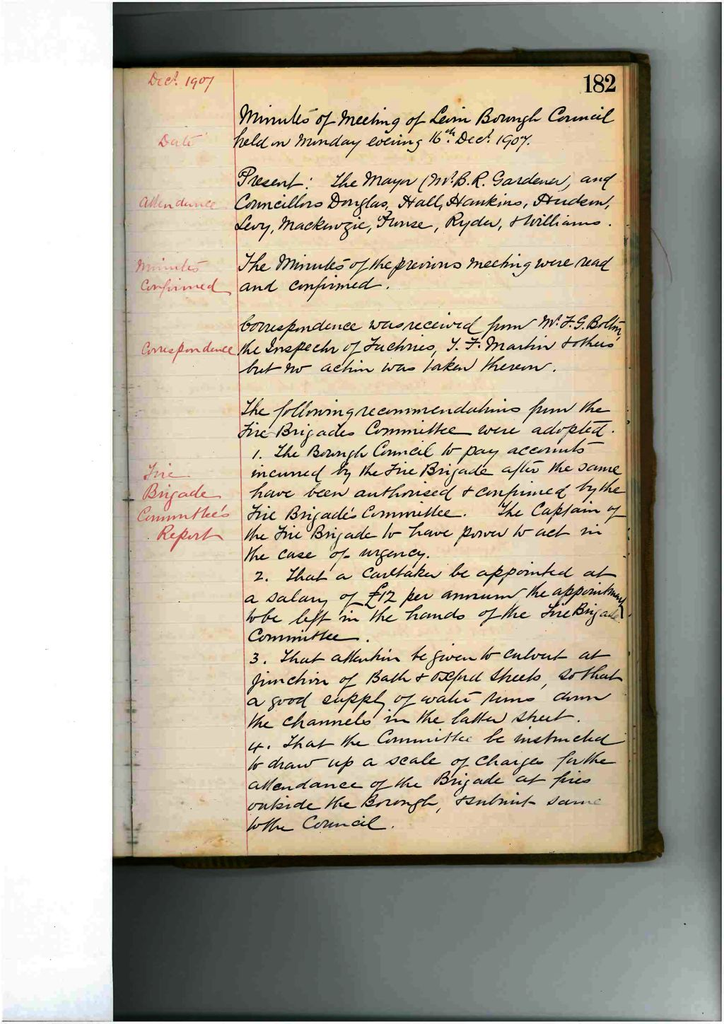 Decr. 1907
182
Minutes of Meeting of Levin Borough Council
Date
held on Monday evening 16th Decr. 1907.
Present: The Mayor (Mr. B. R. Gardener, and
Attendance
Councillors Douglas, Hall, Hankins, Hudson,
Levy, Mackenzie, Prouse, Ryder, & Williams.
Minutes
The Minutes of the previous meeting were read
Confirmed
and confirmed.
Correspondence was received from Mr. F. G. Bolton,
Correspondence
the Inspector of Factories, T. F. Martin & others
but no action was taken thereon.
The following recommendations from the
Fire Brigades Committee were adopted.
1. The Borough Council to pay accounts
Fire
incurred by the Fire Brigade after the same
Brigade
have been authorised & confirmed by the
Committee's
Fire Brigade's Committee. The Captain of
Report
the Fire Brigade to have power to act in
the case of urgency.
2. That a Caretaker be appointed at
a salary of £12 per annum the appointment
to be left in the hands of the Fire Brigade
Committee.
3. That attention be given to culvert at
junction of Bath & Oxford Streets, so that
a good supply of water runs down
the channels in the latter street.
4. That the Committee be instructed
to draw up a scale of charges for the
attendance of the Brigade at fires
outside the Borough, & submit same
to the Council.